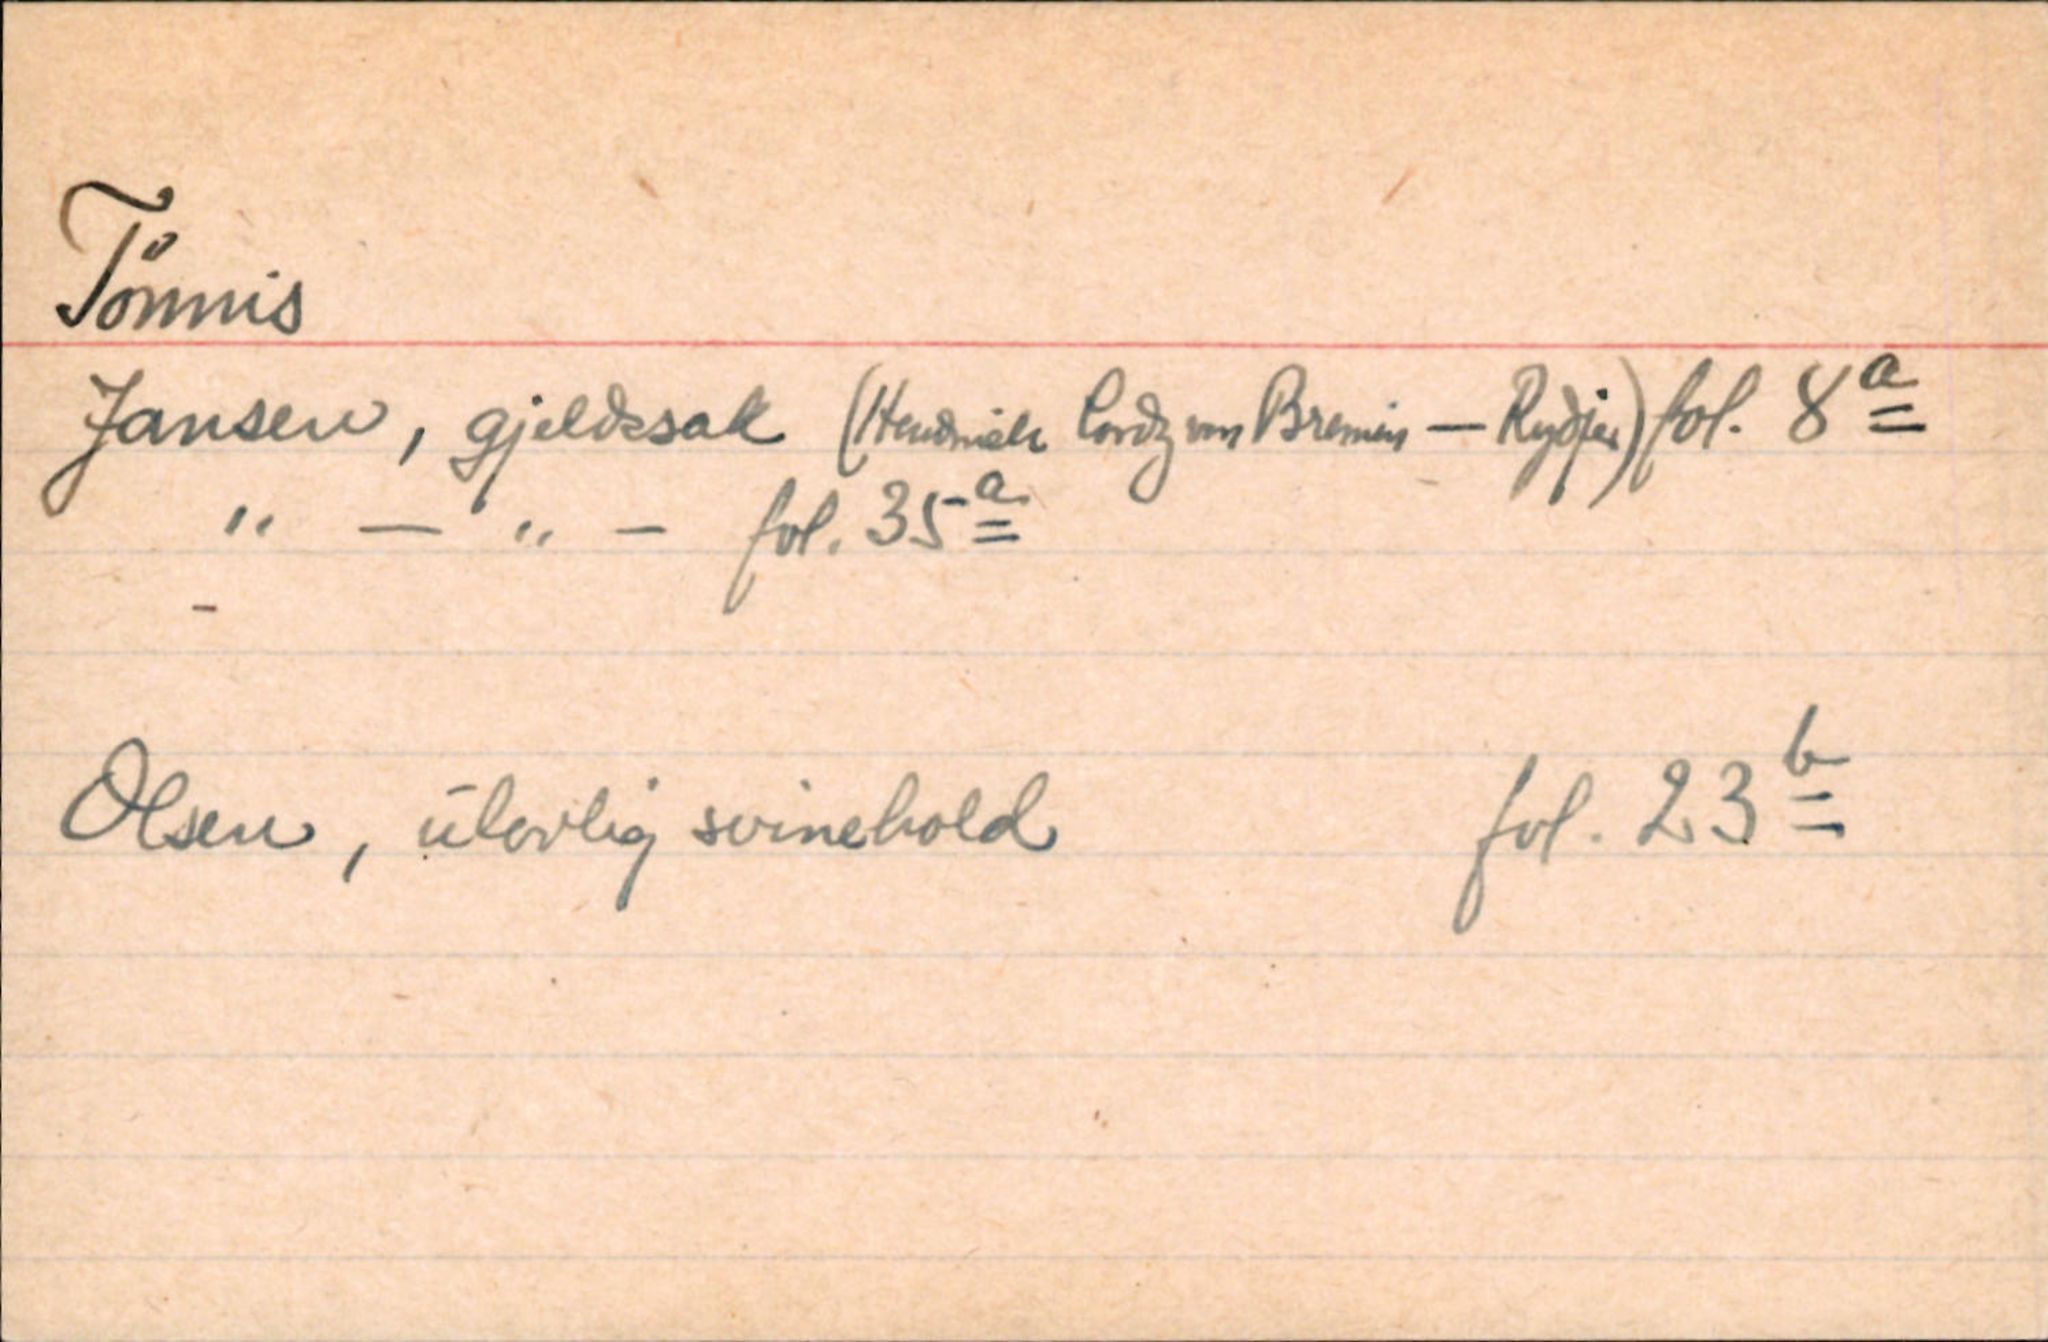 Tönnis
Jansen, gjeldssak (Hendrich Cordz von Bremen — ) fol. 8ª
" — " — fol. 35ª
Olsen, ulovlig svinehold fol. 23ᵇ